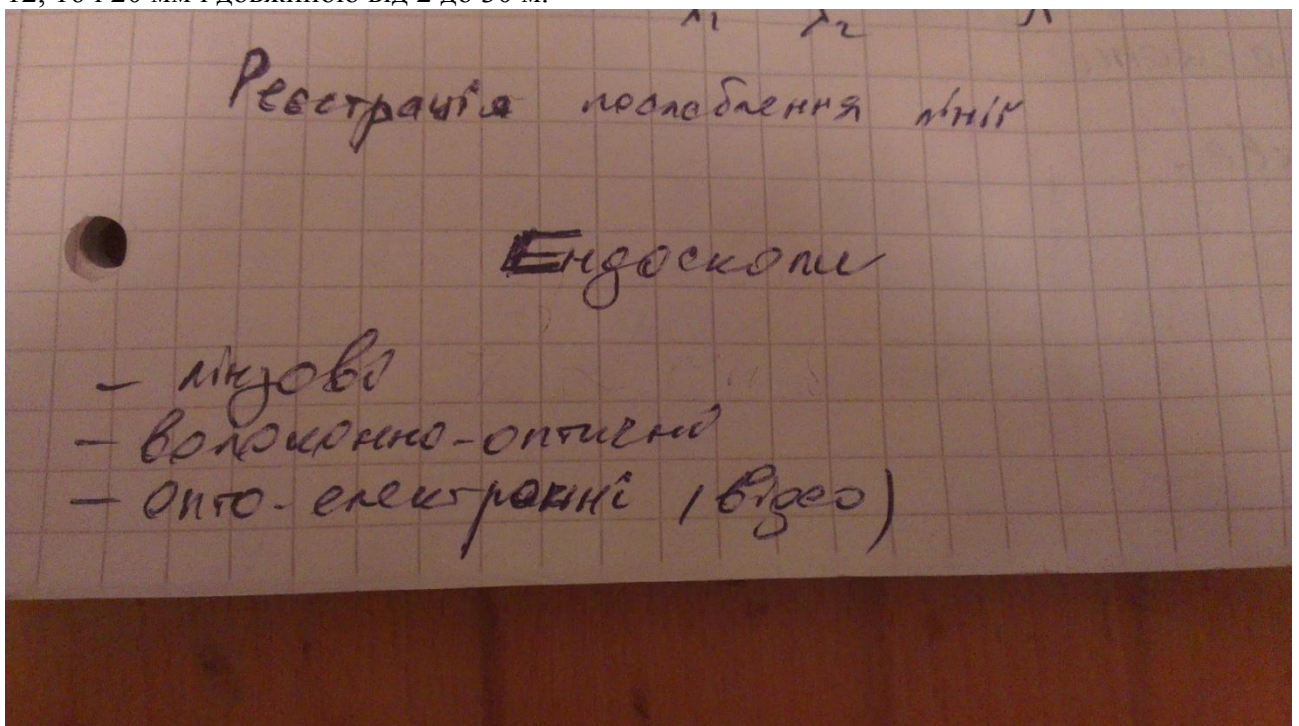 12, 16 і 20 мм і довжиною від 2 до 30 м.
λ1 λ2 λ
Реєстрація послаблення ліній
Ендоскопи
- лінзові
- волоконно-оптичні
- опто-електронні (відео)